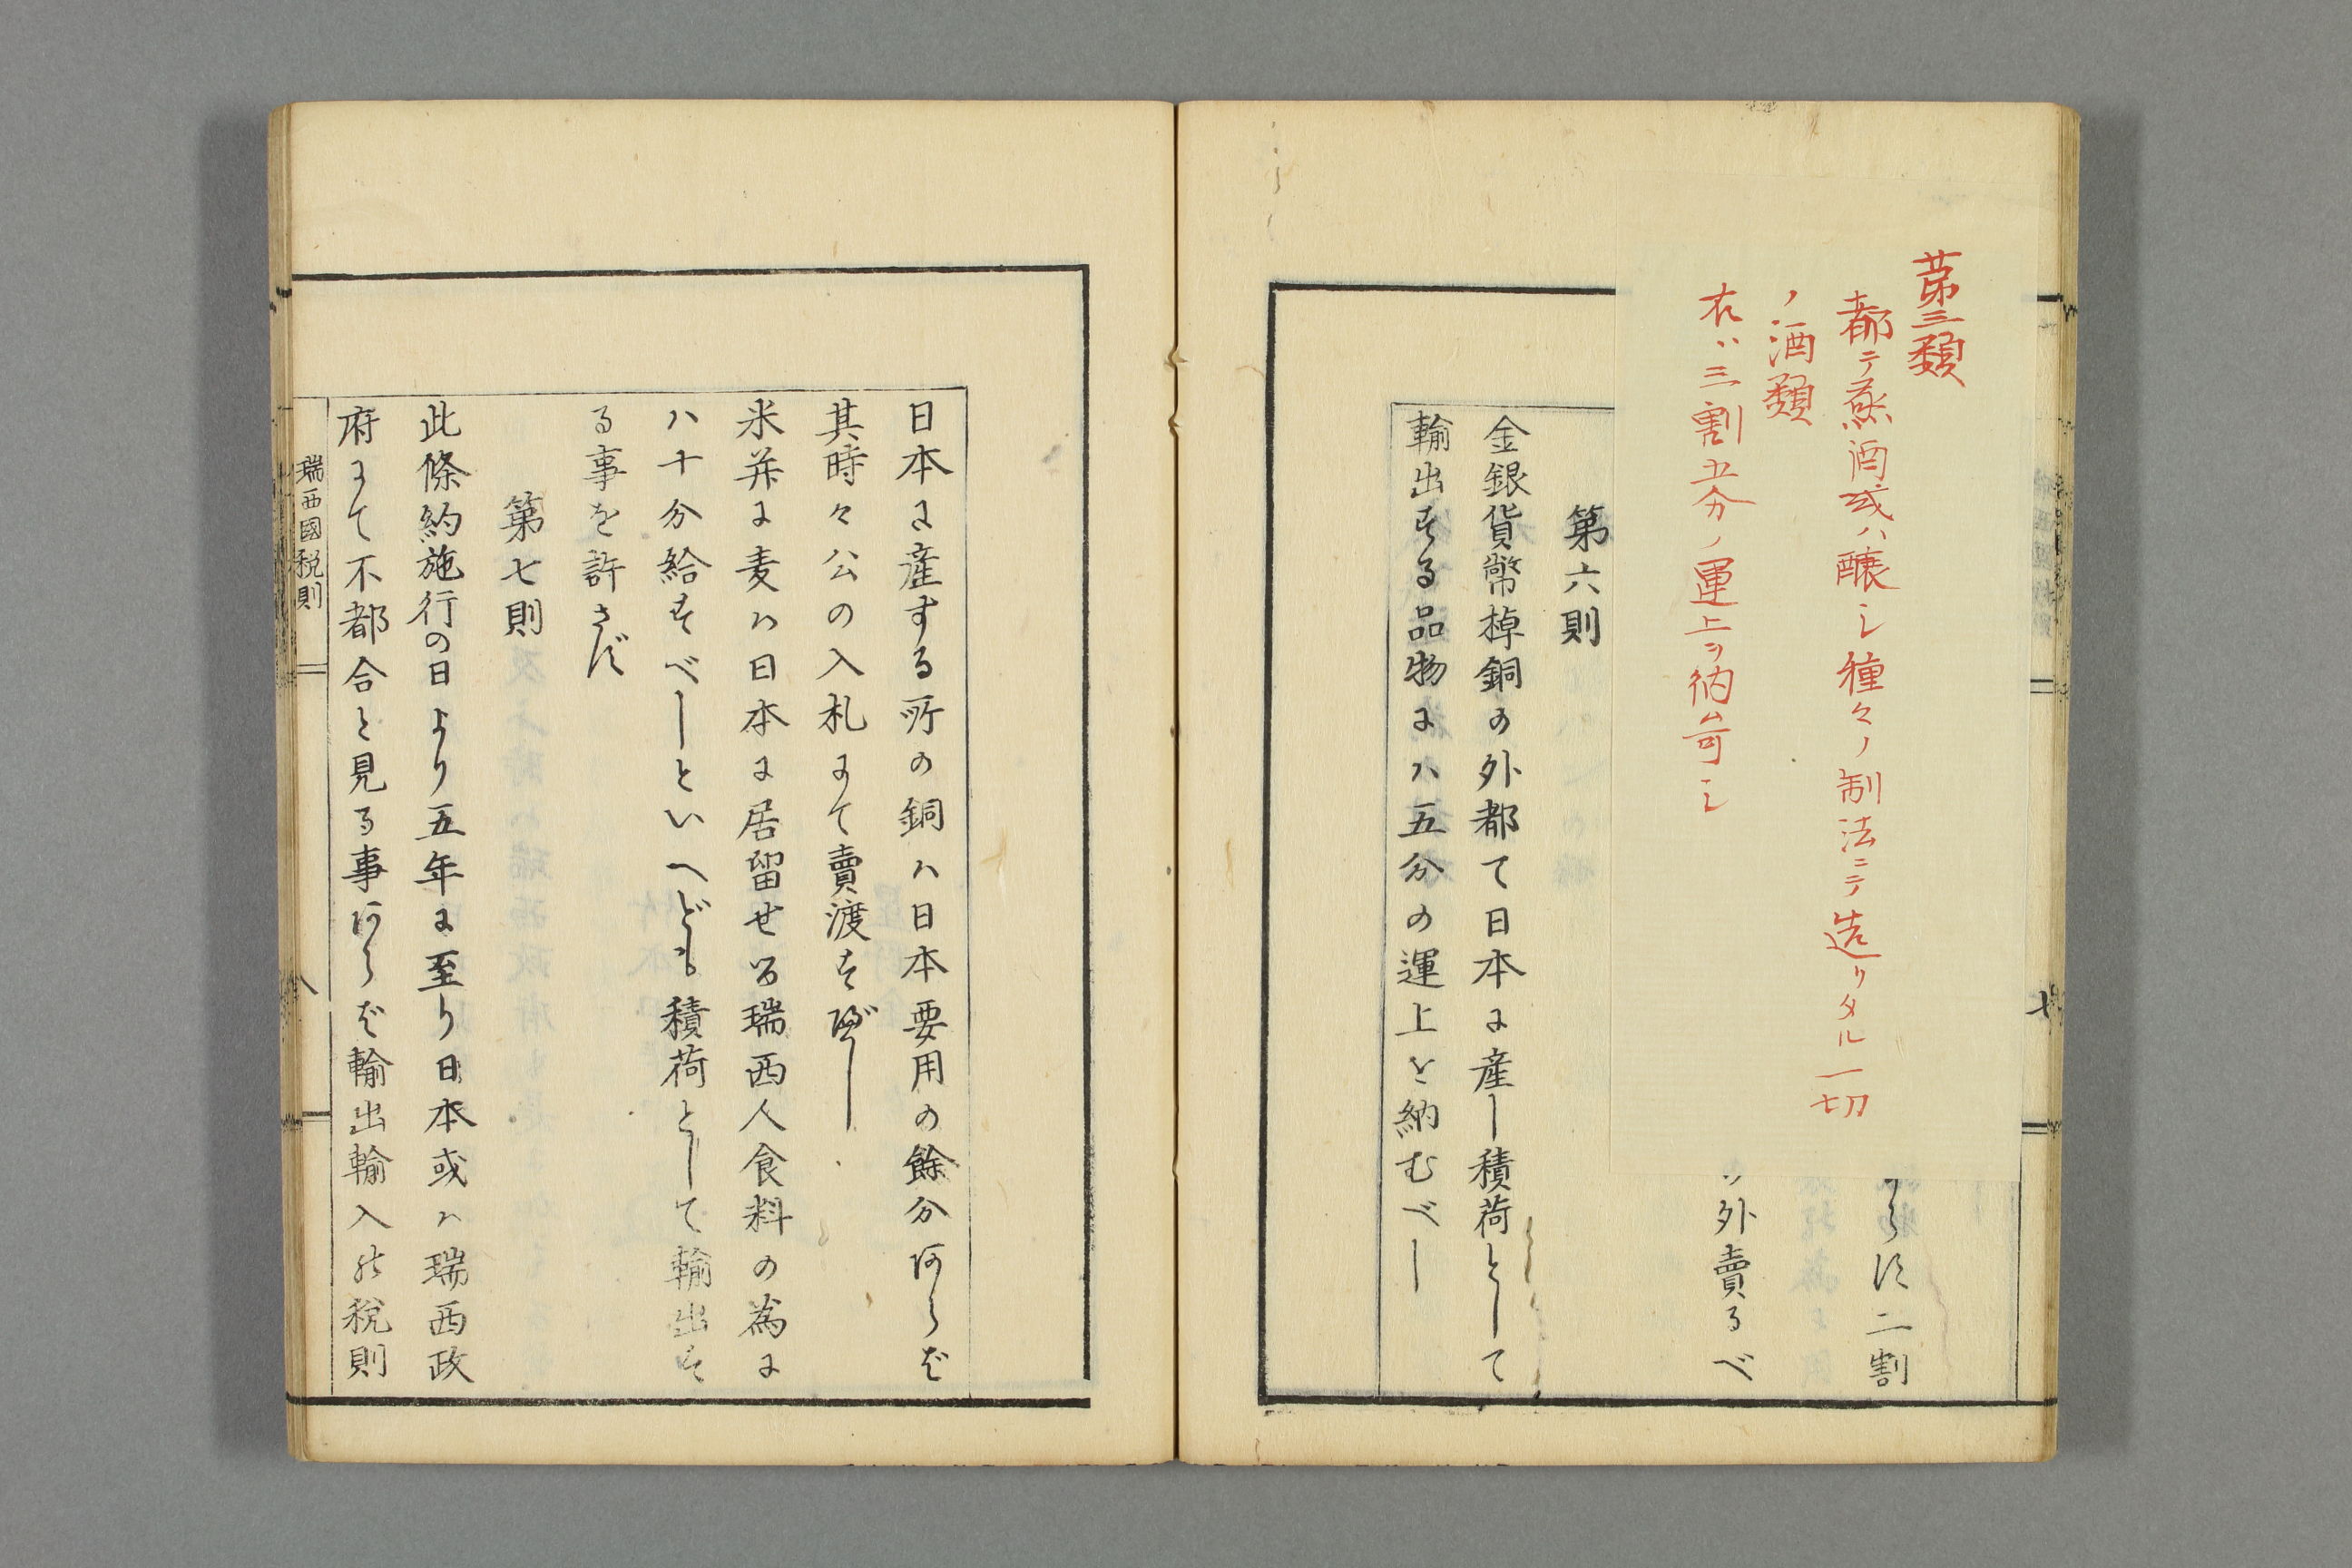 第三類
都テ蒸酒或ハ醸シ種々ノ制法ニテ造リタル一切
ノ酒類
右ハ三割五分ノ運上ヲ納ム可シ
らす二割
外賣るべ
第六則
金銀貨幣棹銅の外都て日本に産し積荷として
輸出する品物にハ五分の運上を納むべし
七
日本に産する所の銅ハ日本要用の餘分あらば
其時々公の入札にて賣渡すべし
米并に麦ハ日本に居留せる瑞西人食料の為に
ハ十分給すべしといへども積荷として輸出す
る事を許さず
第七則
此條約施行の日より五年に至り日本或ハ瑞西政
府にて不都合と見る事あらば輸出輸入の税則
瑞西國税則
八